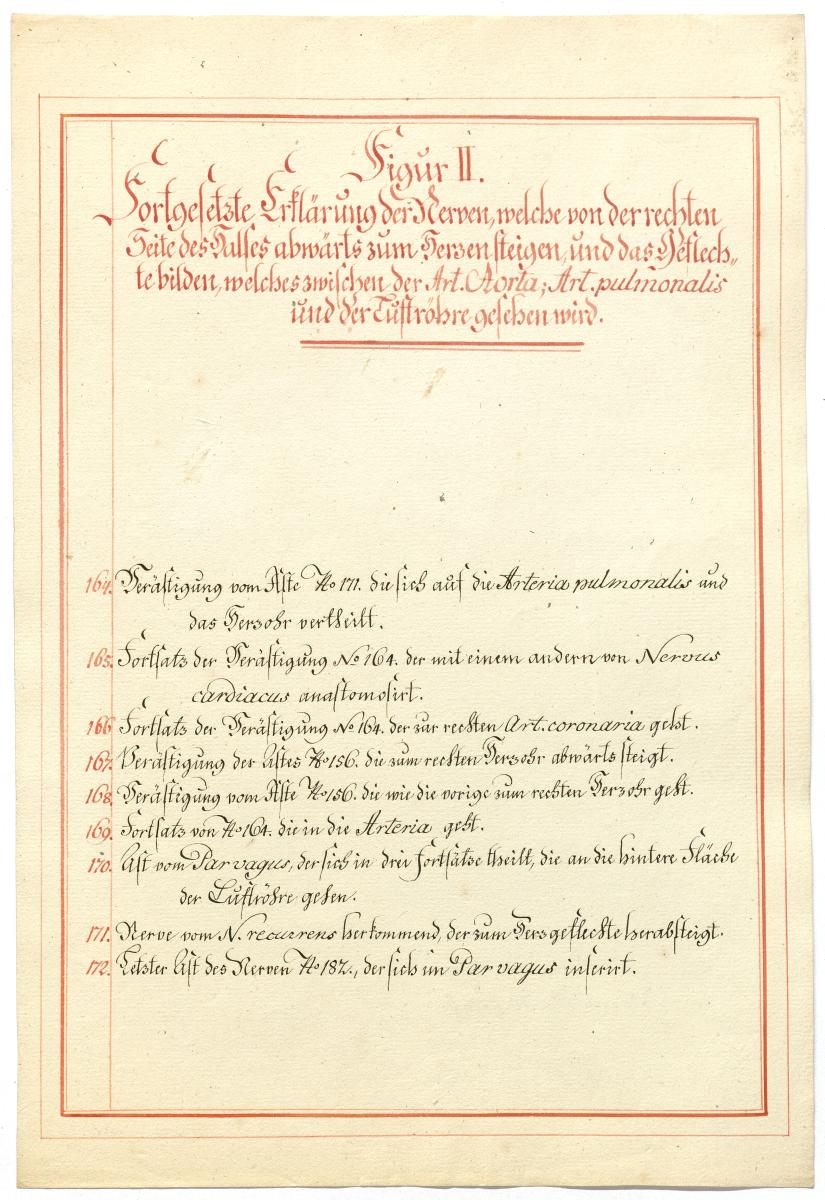 Figur II.
Fortgesetzte Erklärung der Nerven, welche von der rechten
Seite des Halses abwärts zum Herzen steigen, und das Geflech„
te bilden, welches zwischen der Art. Aorta; Art. pulmonalis
und der Luftröhre gesehen wird.
164. Verästigung vom Äste No 171. die sich auf die Arteria pulmonalis und
das Herzohr vertheilt.
165. Fortsatz der Verästigung No 164. der mit einem andern von Nervus
cardiacus anastomosirt.
166 Fortsatz der Verästigung No 164. der zur rechten Art. coronaria geht.
167. Verästigung der Astes No 156. die zum rechten Herzohr abwärts steigt.
168. Verästigung vom Äste No 156. die wie die vorige zum rechten Herzohr geht.
169. Fortsatz von No 164. die in die Arteria geht.
170. Ast vom Par vagus, der sich in drei Fortsätze theilt, die an die hintere Fläche
der Luftröhre gehen.
171. Nerve vom N. recurrens herkommend, der zum Herzgeflechte herabsteigt.
172. Letzter Ast des Nerven No 182., der sich im Par vagus inserirt.